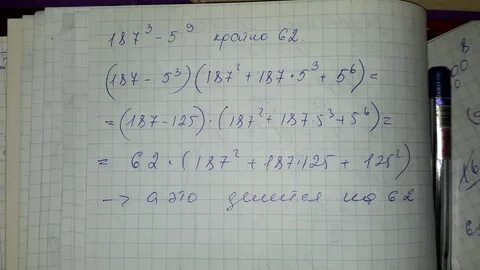 187³ - 5⁹ кратно 62
(187 - 5³)(187² + 187·5³ + 5⁶) =
= (187 - 125)·(187² + 187·5³ + 5⁶) =
= 62·(187² + 187·125 + 125²)
→ а это делится на 62